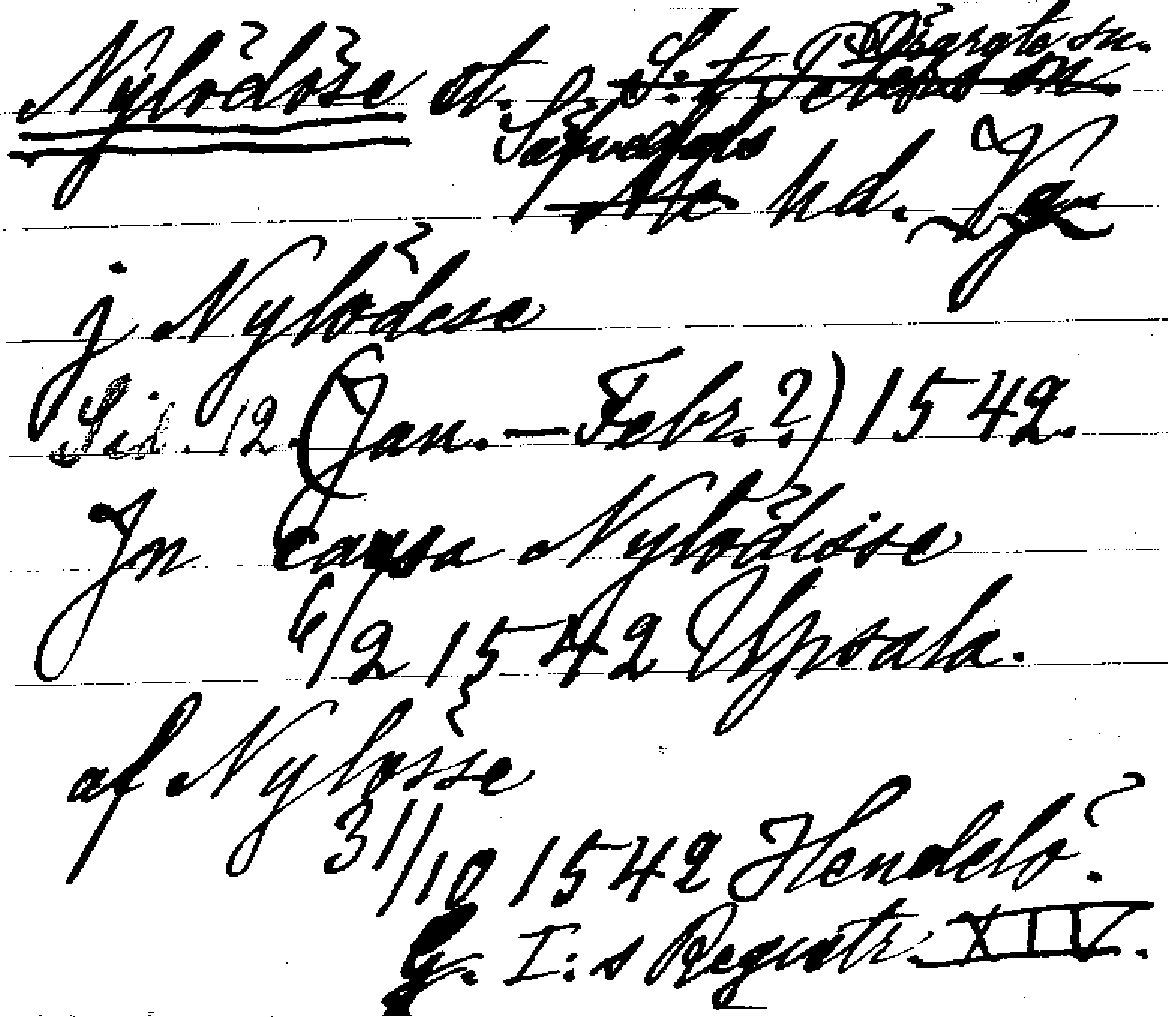 Nylödöse st. S:t Peters sn.
Sävedals hd. Vg
j Nylödese
Sid. 12 (Jan. – Febr.?) 1542.
Jn causa Nylödisse
6/2 1542 Upsala.
af Nylösse
31/10 1542 Hendelö.
G. I:s Registr. XIV.